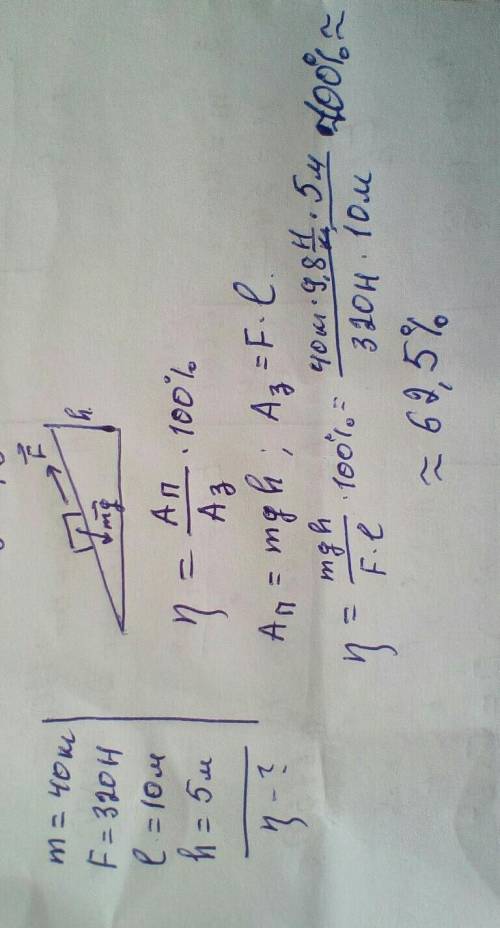 m = 40 кг
F = 320 Н
l = 10 м
h = 5 м
η - ?
F
mg
h
η = Aп / Aз · 100%
Aп = mgh ; Aз = F · l.
η = mgh / F · l · 100% = 40 кг · 9,8 Н/кг · 5 м / 320 Н · 10 м · 100% ≈
≈ 62,5%